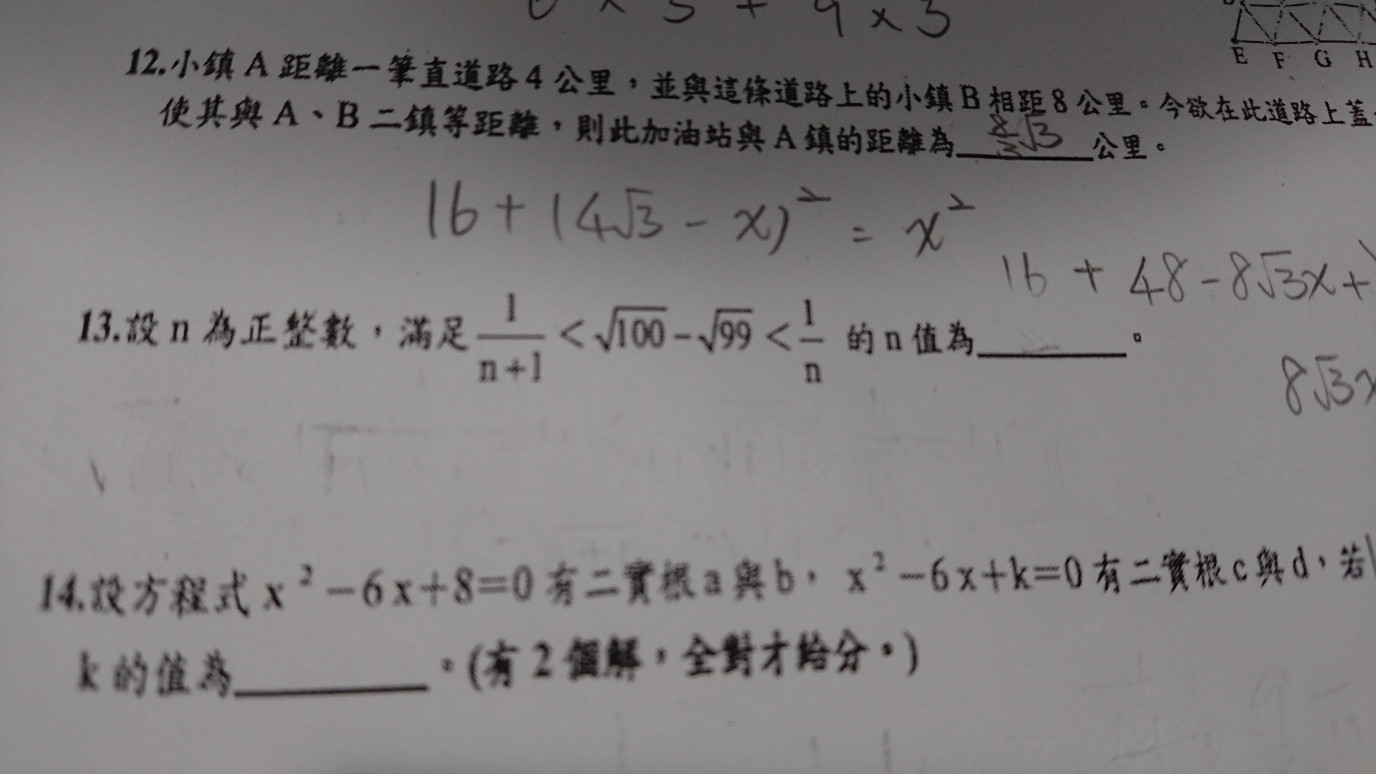 × 3 + 9 × 3
E F G H
12.小鎮 A 距離一筆直道路 4 公里，並與這條道路上的小鎮 B 相距 8 公里。今欲在此道路上蓋
使其與 A、B 二鎮等距離，則此加油站與 A 鎮的距離為 8/3 √3 公里。
16 + (4√3 - x)² = x²
16 + 48 - 8√3x +
13.設 n 為正整數，滿足 1/(n+1) < √100 - √99 < 1/n 的 n 值為______。
8√3x
14.設方程式 x² - 6x + 8 = 0 有二實根 a 與 b，x² - 6x + k = 0 有二實根 c 與 d，若
k 的值為______。(有 2 個解，全對才給分。)